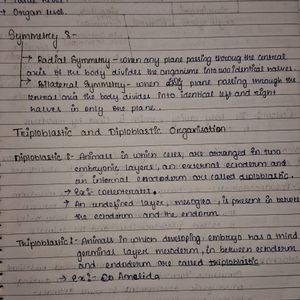 → Organ level.
Symmetry :-
→ Radial Symmetry - when any plane passing through the central
axis of the body divides the organisms into two identical halves.
→ Bilateral Symmetry - when plane passing through the
central axis the body divides into identical left and right
halves in only one plane.
Triploblastic and Diploblastic Organisation
Diploblastic :- Animals in which cells, are arranged in two
embryonic layers, an external ectoderm and
an internal endoderm are called diploblastic.
→ ex:- coelenterates.
→ An undefined layer, mesoglea, is present in between
the ectoderm and the endoderm
Triploblastic :- Animals in which developing embryo has a third
germinal layer mesoderm, in between ectoderm
and endoderm are called triploblastic
→ ex:- Annelida